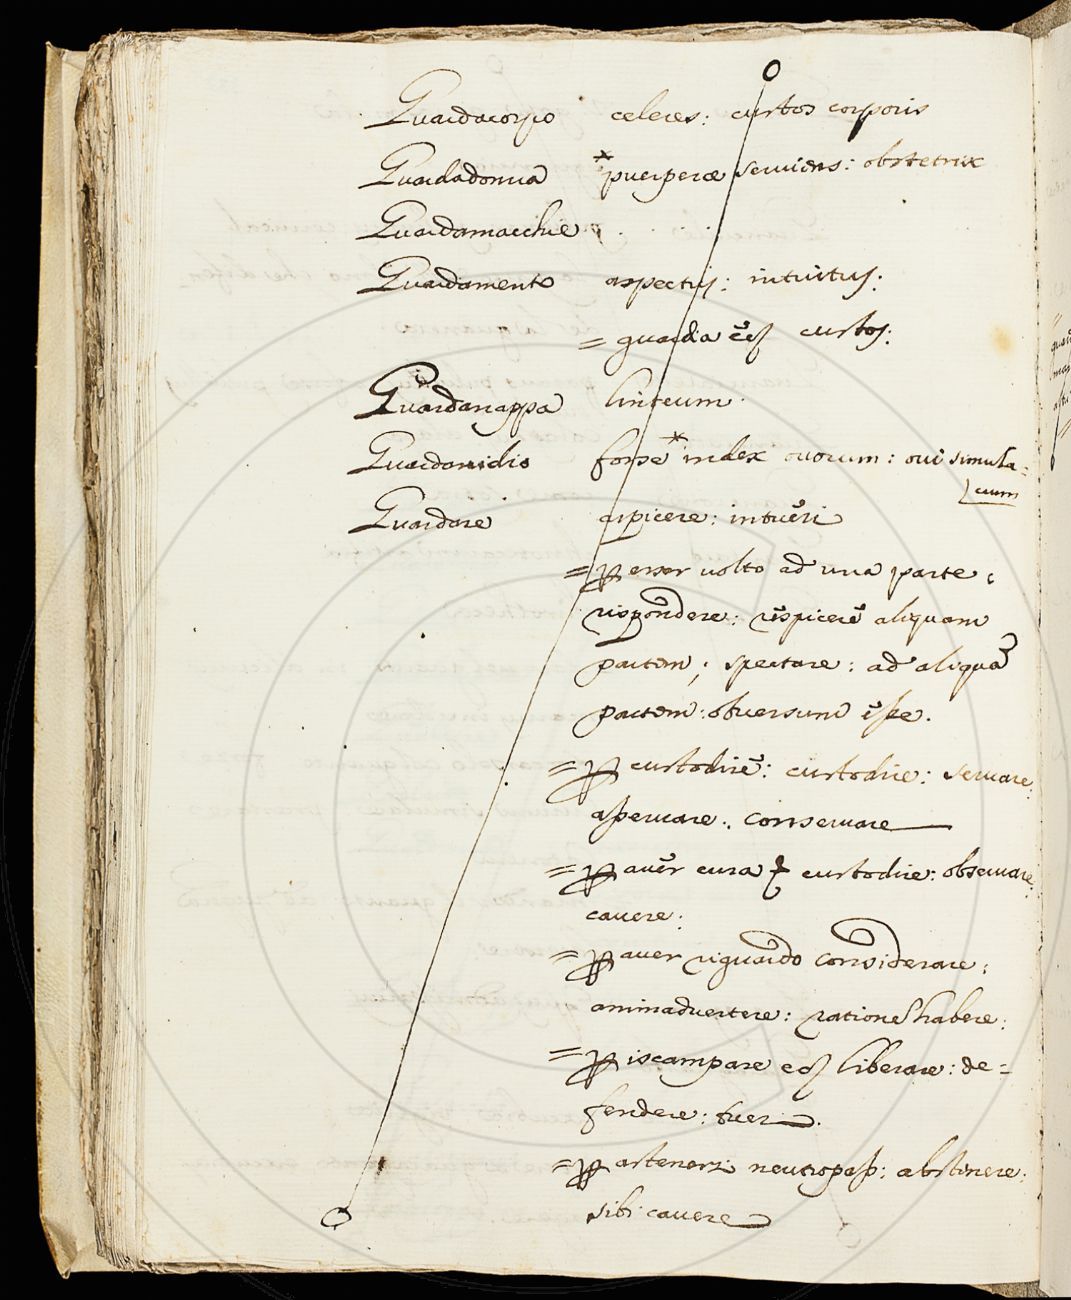 Guardacorpo celeres: custos corporis
Guardadonna *puerperæ serviens: obstetrix
Guardamacchie
Guardamento aspectus: intuitus:
= guardia custos:
Guardanappa linteum.
Guardanidio forse* index ovorum: ovi simula=
crum
Guardare aspicere: intuēri
= p esser volto ad una parte,
rispondere: respicere aliquam
partem; spectare: ad aliquā
partem: obversum esse.
= p custodire: custodire: servare:
asservare: conservare
= p aver cura custodire: observare:
cavere:
= p aver riguardo considerare:
animadvertere: ratione habere:
= p iscampare liberare: de=
fendere: tueri.
= p astenersi neutropass: abstinere:
sibi cavere